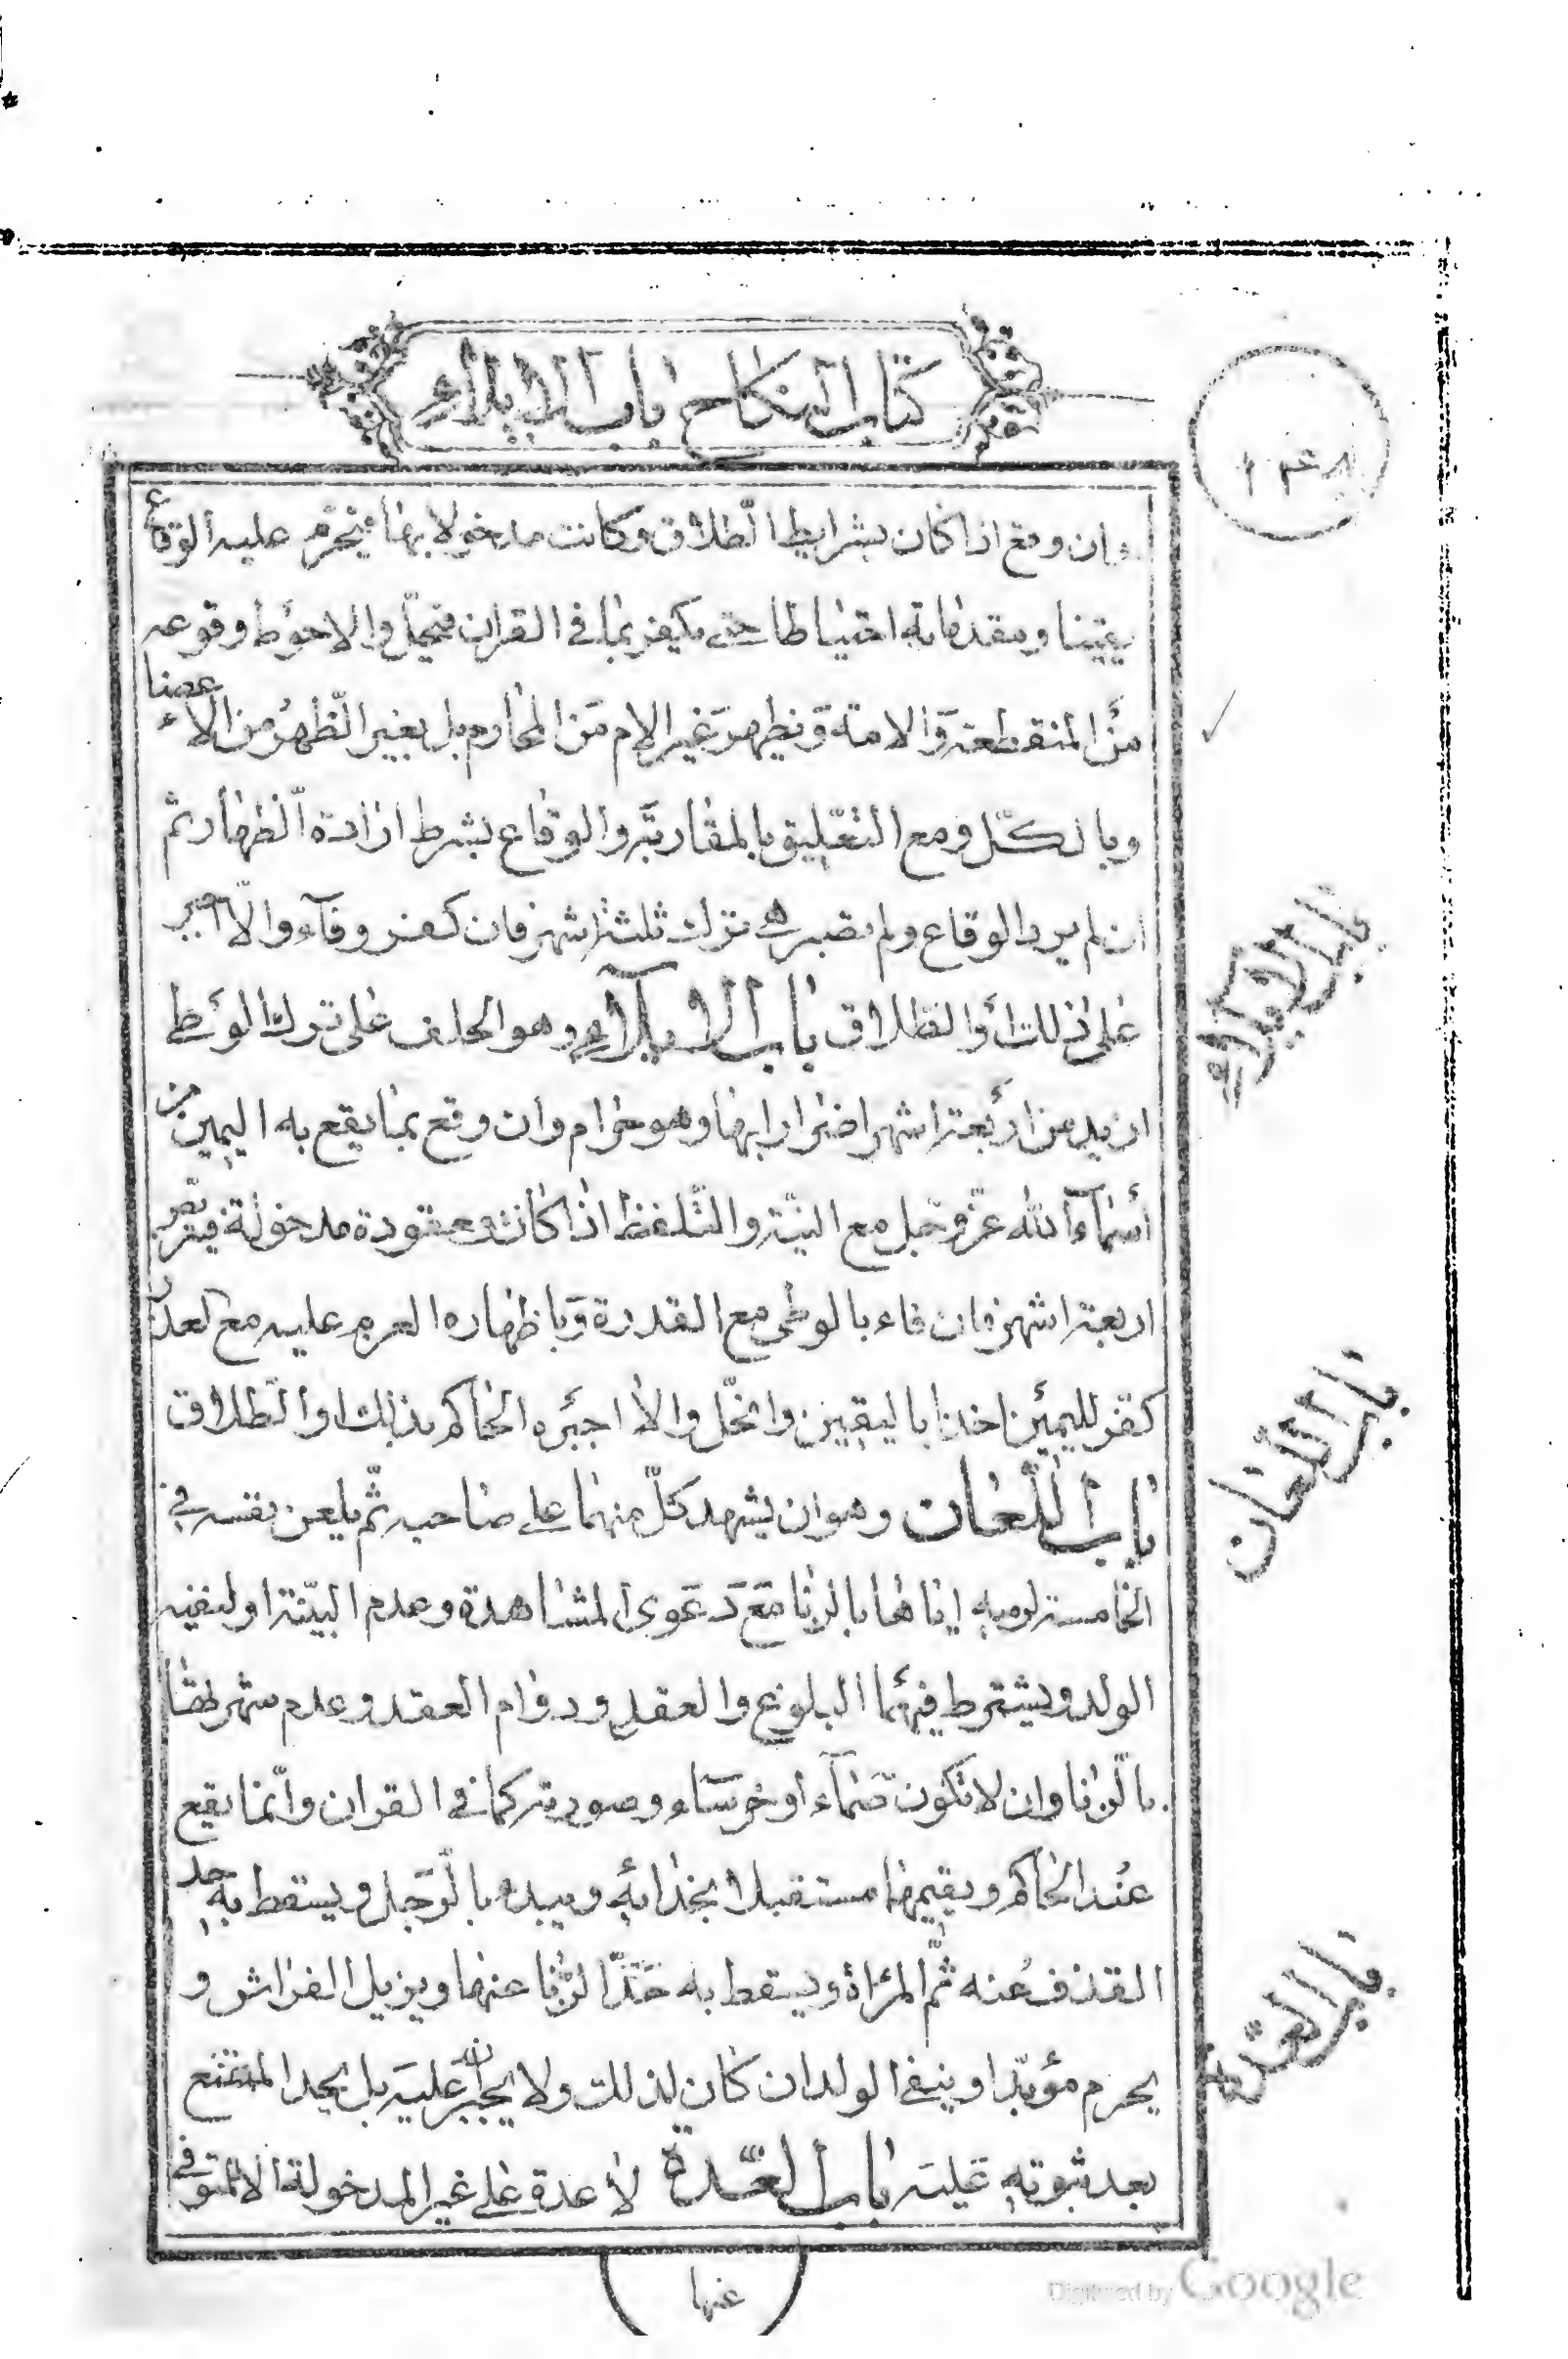 كتاب النكاح باب الايلاء
وان وقع اذا كان بشرايط الطلاق وكانت مدخولا بها فيحرم عليه الوقاع
يقينا احتياطا حتى يكفر بما في القران والاحوط وقوعه
من المنقطعة والامة وبظهر غير الام من المحارم بل بغير الظهر من الاعضاء
وبالكل ومع التعليق بالمقاربة والوقاع بشرط ارادة الظهار ثم
ان لم يرد الوقاع ولم تصبر هي ترك ثلثة اشهر فان كفر وفآء والا اجبر
على ذلك او الطلاق باب الايلآء وهو الحلف على ترك الوطي
ازيد من اربعة اشهر اضرارا بها وهو حرام وان وقع بما يقع به اليمين من
أسمآء الله عز وجل مع النية والتلفظ اذا كانت معقودة مدخولة فيتربص
اربعة اشهر فان فاء بالوطي مع القدرة وباظهاره العزم عليه مع العدم
كفر لليمين اخذا باليقين وانحل والا اجبره الحاكم بذلك او الطلاق
باب اللعان وهو ان يشهد كل منهما على صاحبه ثم يلعن نفسه في
الخامسة لرميه اياها بالزنا مع دعوى المشاهدة وعدم البينة او لنفيه
الولد ويشترط فيهما البلوغ والعقل ودوام العقد وعدم شهرطها
بالزنا وان لا تكون صمآء او خرسآء وصورته كما في القران وانما يقع
عند الحاكم ويقيمهما مستقبلا بحذائه ويبدء بالرجل ويسقط به حد
القذف عنه ثم المراة ويسقط به حد الزنا عنها ويزيل الفراش و
يحرم مؤبدا وينفي الولد ان كان لذلك ولا يجبر عليه بل يحد الممتنع
بعد ثبوته عليه باب العدة لا عدة على غير المدخولة الا المتوفى
عنها
باب الايلاء
باب اللعان
باب العدة
Digitized by Google